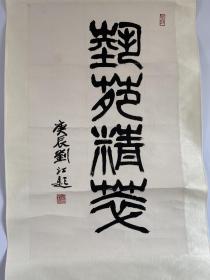 藝苑精英
庚辰劉江題